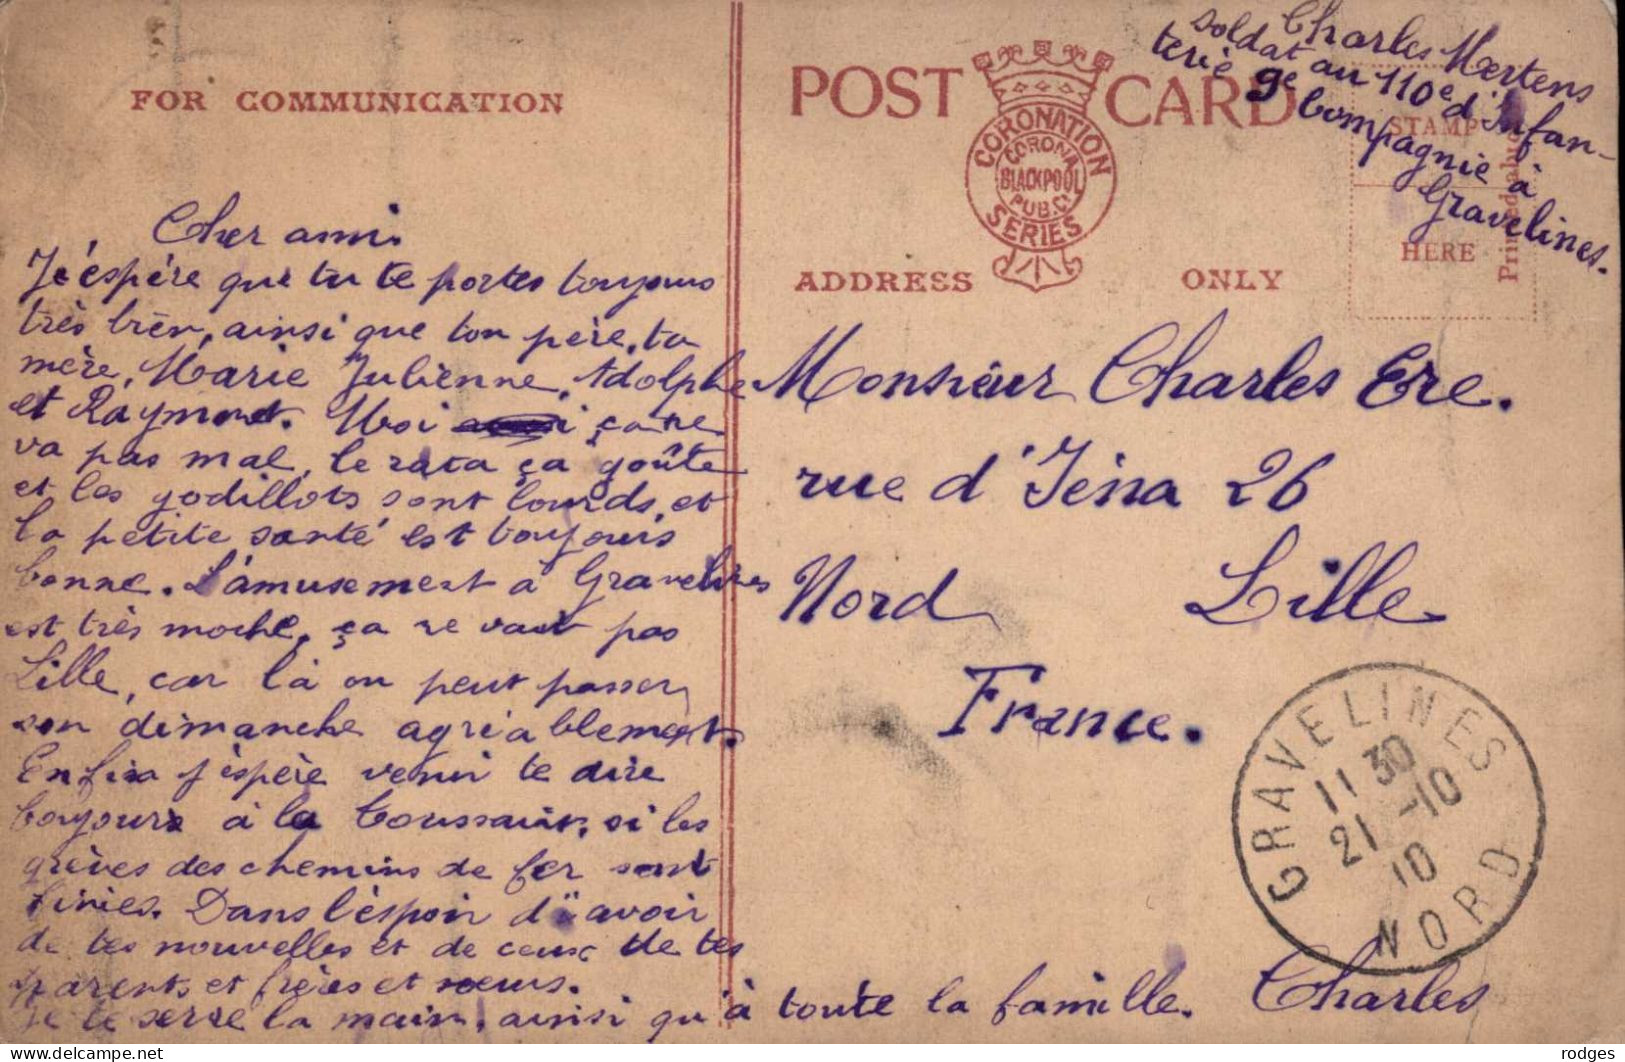 FOR COMMUNICATION
POST CARD
CORONATION SERIES
CORONA
BLACKPOOL
PUB. Co
ADDRESS ONLY
STAMP
HERE
Printed abroad
Charles Mertens
soldat au 110e d'Infan-
terie 9e Compagnie à
Gravelines.
Cher ami
J'éspére que tu te portes toujours
très bien, ainsi que ton père, ta
mère, Marie Julienne, Adolphe
et Raymond. Moi ça ne
va pas mal, le rata ça goûte
et les godillots sont lourds, et
la petite santé est toujours
bonne. L'amusement à Gravelines
est très moche, ça ne vaut pas
Lille, car là on peut passer
son dimanche agriablement.
Enfin j'éspère venir te dire
bonjours à la Toussaint, si les
grèves des chemins de fer sont
finies. Dans l'éspoir d'avoir
de tes nouvelles et de ceux de tes
parents et frères et sœurs.
Je te serre la main, ainsi qu'à toute la famille. Charles
Monsieur Charles Ere.
rue d'Iéna 26
Nord Lille
France.
GRAVELINES
11 30
21 -10
10
NORD
rodges